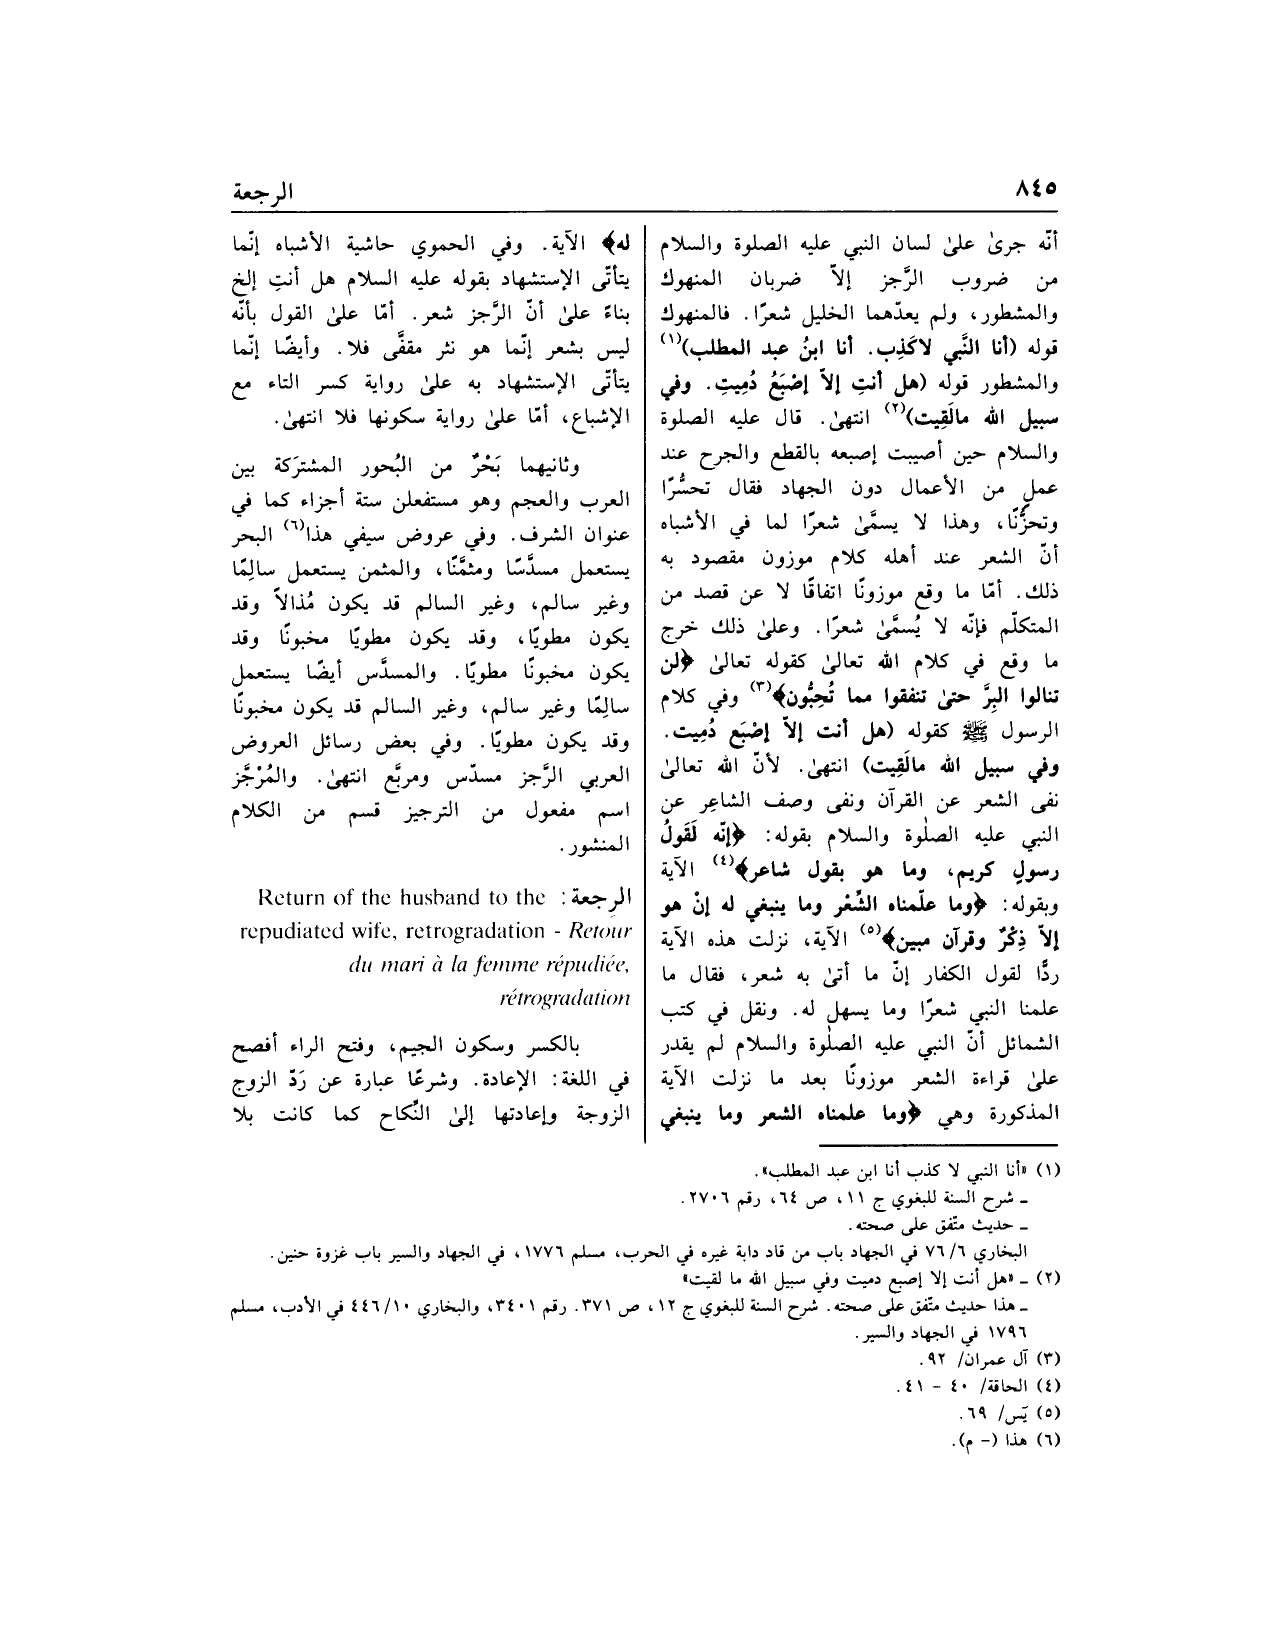 ٨٤٥
الرجعة
أنّه جرىٰ علىٰ لسان النبي عليه الصلوة والسلام
من ضروب الرَّجز إلاّ ضربان المنهوك
والمشطور، ولم يعدّهما الخليل شعرًا. فالمنهوك
قوله (أنا النَّبي لاكَذِب. أنا ابنُ عبد المطلب)(١)
والمشطور قوله (هل أنتِ إلاّ إصْبَعُ دُمِيتِ. وفي
سبيل الله مالَقِيت)(٢) انتهىٰ. قال عليه الصلوة
والسلام حين أصيبت إصبعه بالقطع والجرح عند
عملٍ من الأعمال دون الجهاد فقال تحسُّرًا
وتحزُّنًا، وهذا لا يسمَّىٰ شعرًا لما في الأشباه
أنّ الشعر عند أهله كلام موزون مقصود به
ذلك. أمّا ما وقع موزونًا اتفاقًا لا عن قصد من
المتكلّم فإنّه لا يُسمَّىٰ شعرًا. وعلىٰ ذلك خرج
ما وقع في كلام الله تعالىٰ كقوله تعالىٰ ﴿لن
تنالوا البِرَّ حتىٰ تنفقوا مما تُحِبُّون﴾(٣) وفي كلام
الرسول ﷺ كقوله (هل أنت إلاّ إصْبَع دُمِيت.
وفي سبيل الله مالَقِيت) انتهىٰ. لأنّ الله تعالىٰ
نفى الشعر عن القرآن ونفى وصف الشاعِر عن
النبي عليه الصلٰوة والسلام بقوله: ﴿إنّه لَقَولُ
رسولٍ كريم، وما هو بقول شاعر﴾(٤) الآية
وبقوله: ﴿وما علّمناه الشِّعْر وما ينبغي له إنْ هو
إلاّ ذِكْرٌ وقرآن مبين﴾(٥) الآية، نزلت هذه الآية
ردًّا لقول الكفار إنّ ما أتىٰ به شعر، فقال ما
علمنا النبي شعرًا وما يسهل له. ونقل في كتب
الشمائل أنّ النبي عليه الصلٰوة والسلام لم يقدر
علىٰ قراءة الشعر موزونًا بعد ما نزلت الآية
المذكورة وهي ﴿وما علمناه الشعر وما ينبغي
له﴾ الآية. وفي الحموي حاشية الأشباه إنّما
يتأتّى الإستشهاد بقوله عليه السلام هل أنتِ إلخ
بناءً علىٰ أنّ الرَّجز شعر. أمّا علىٰ القول بأنّه
ليس بشعر إنّما هو نثر مقفًّى فلا. وأيضًا إنّما
يتأتّى الإستشهاد به علىٰ رواية كسر التاء مع
الإشباع، أمّا علىٰ رواية سكونها فلا انتهىٰ.
وثانيهما بَحْرٌ من البُحور المشترَكة بين
العرب والعجم وهو مستفعلن ستة أجزاء كما في
عنوان الشرف. وفي عروض سيفي هذا(٦) البحر
يستعمل مسدَّسًا ومثمَّنًا، والمثمن يستعمل سالِمًا
وغير سالم، وغير السالم قد يكون مُذالاً وقد
يكون مطويًا، وقد يكون مطويًا مخبونًا وقد
يكون مخبونًا مطويًا. والمسدَّس أيضًا يستعمل
سالِمًا وغير سالم، وغير السالم قد يكون مخبونًا
وقد يكون مطويًا. وفي بعض رسائل العروض
العربي الرَّجز مسدّس ومربَّع انتهىٰ. والمُرْجَّز
اسم مفعول من الترجيز قسم من الكلام
المنشور.
الرجعة: Return of the husband to the
repudiated wife, retrogradation - Retour
du mari à la femme répudiée,
rétrogradation
بالكسر وسكون الجيم، وفتح الراء أفصح
في اللغة: الإعادة. وشرعًا عبارة عن رَدّ الزوج
الزوجة وإعادتها إلىٰ النِّكاح كما كانت بلا
(١) «أنا النبي لا كذب أنا ابن عبد المطلب».
ـ شرح السنة للبغوي ج ١١، ص ٦٤، رقم ٢٧٠٦.
ـ حديث متّفق على صحته.
البخاري ٦/ ٧٦ في الجهاد باب من قاد دابة غيره في الحرب، مسلم ١٧٧٦، في الجهاد والسير باب غزوة حنين.
(٢) ـ «هل أنت إلا إصبع دميت وفي سبيل الله ما لقيت»
ـ هذا حديث متّفق على صحته. شرح السنة للبغوي ج ١٢، ص ٣٧١. رقم ٣٤٠١، والبخاري ١٠/ ٤٤٦ في الأدب، مسلم
١٧٩٦ في الجهاد والسير.
(٣) آل عمران/ ٩٢.
(٤) الحاقة/ ٤٠ – ٤١.
(٥) يَس/ ٦٩.
(٦) هذا (– م).